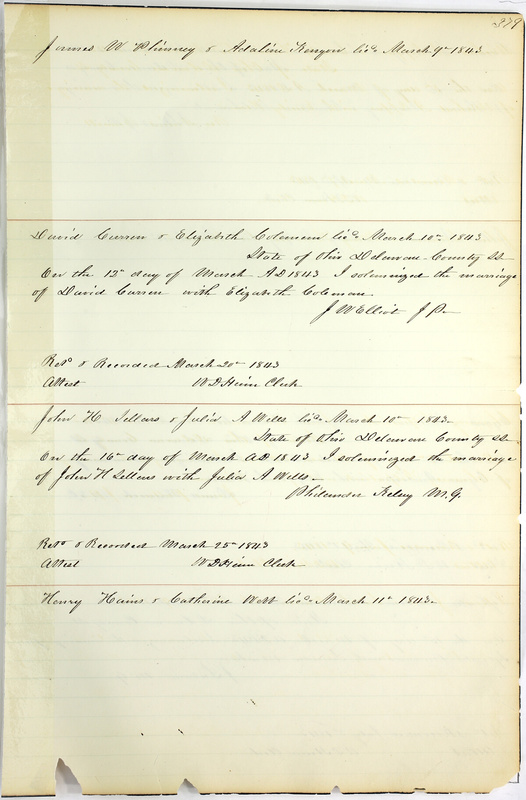 379
James W Phinney & Adaline Kenyon licd March 9th 1843
David Curren & Elizabeth Coleman licd March 10th 1843
State of Ohio Delaware County SS
On the 12th day of March AD 1843 I solemnized the marriage
of David Curren with Elizabeth Coleman
J W Elliot J P
Retd & Recorded March 20th 1843
Attest W D Heim Clerk
John H Sellars & Julia A Wells licd March 10th 1843
State of Ohio Delaware County SS
On the 16th day of March AD 1843 I solemnized the marriage
of John H Sellars with Julia A Wells
Philander Kelsey M.G.
Retd & Recorded March 25th 1843
Attest W D Heim Clerk
Henry Hains & Catharine Webb licd March 11th 1843